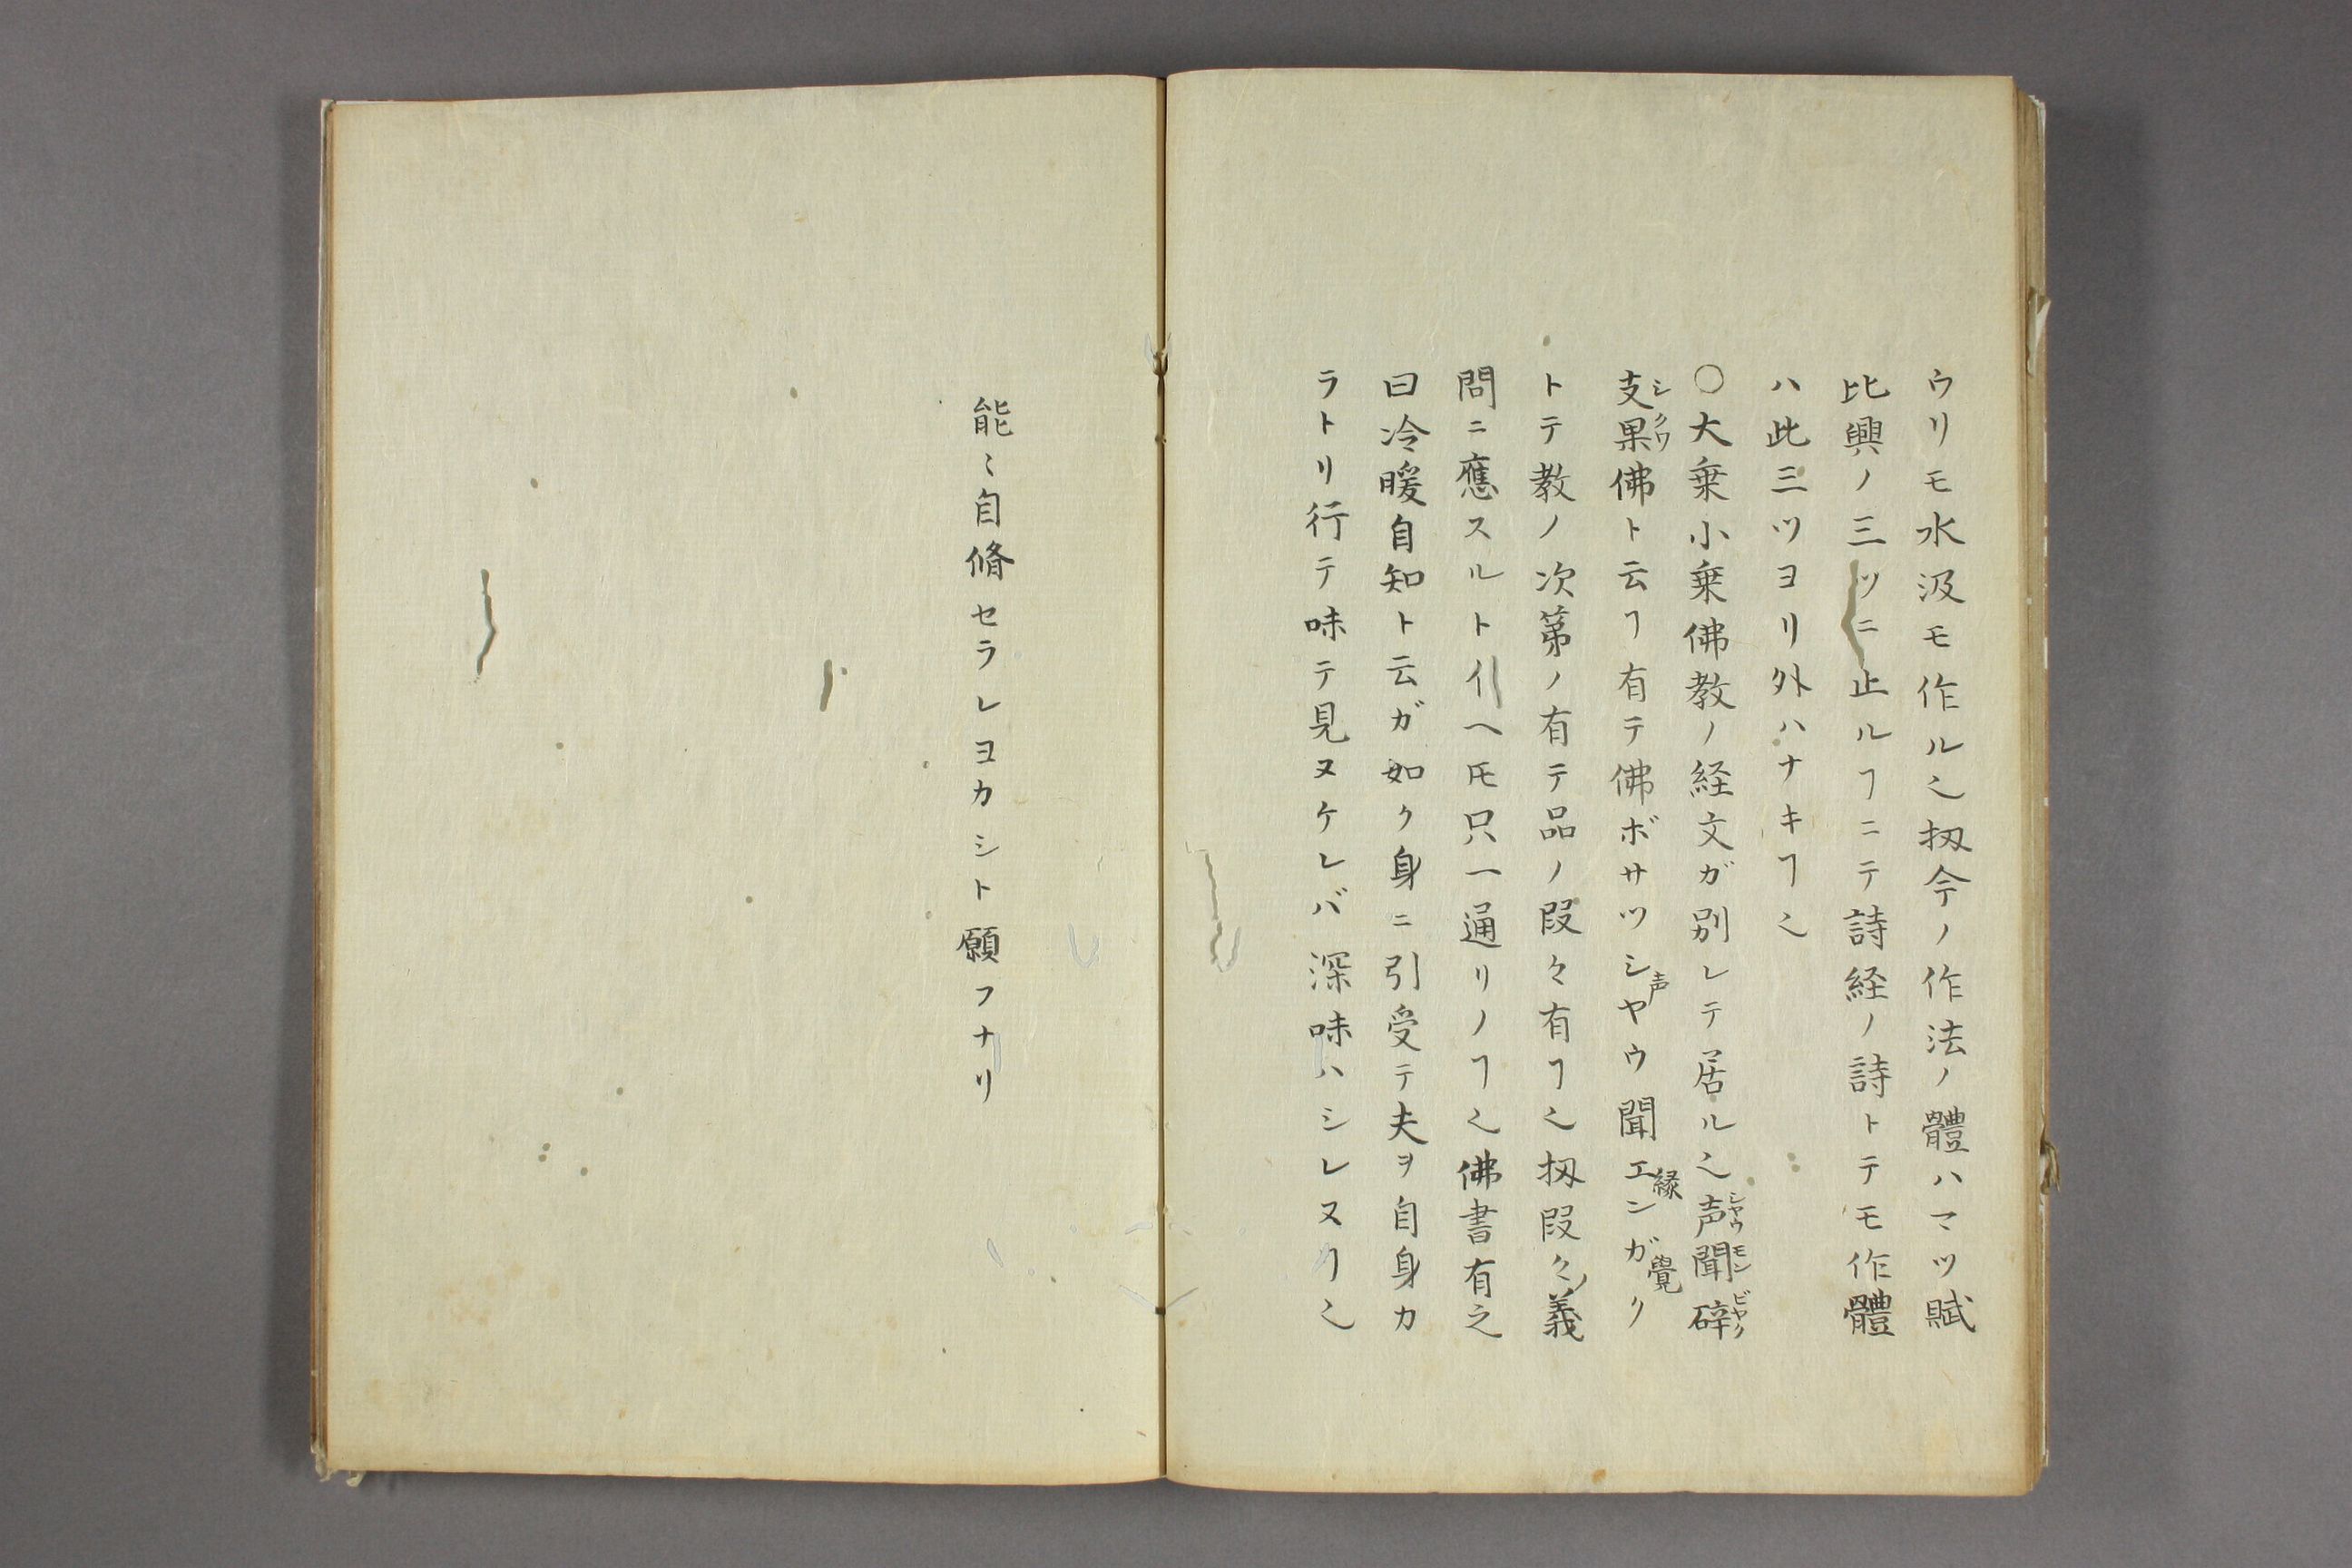 ウリモ水汲モ作ル也扨今ノ作法ノ體ハマツ賦
比興ノ三ツニ止ルヿニテ詩経ノ詩トテモ作體
ハ此三ツヨリ外ハナキヿ也
〇大乗小乗佛教ノ経文ガ別レテ居ル也声聞碎
シヤウモンビヤク
支果佛ト云ヿ有テ佛ボサツシヤウ聞エンガク
シクワ
声
縁
覺
トテ教ノ次第ノ有テ品ノ段々有ヿ也扨段々ノ義
問ニ應スルトイヘ𪜈只一通リノヿ也佛書有之
曰冷暖自知ト云ガ如ク身ニ引受テ夫ヲ自身カ
ラトリ行テ味テ見ヌケレバ深味ハシレヌヿ也
能〻自脩セラレヨカシト願フナリ